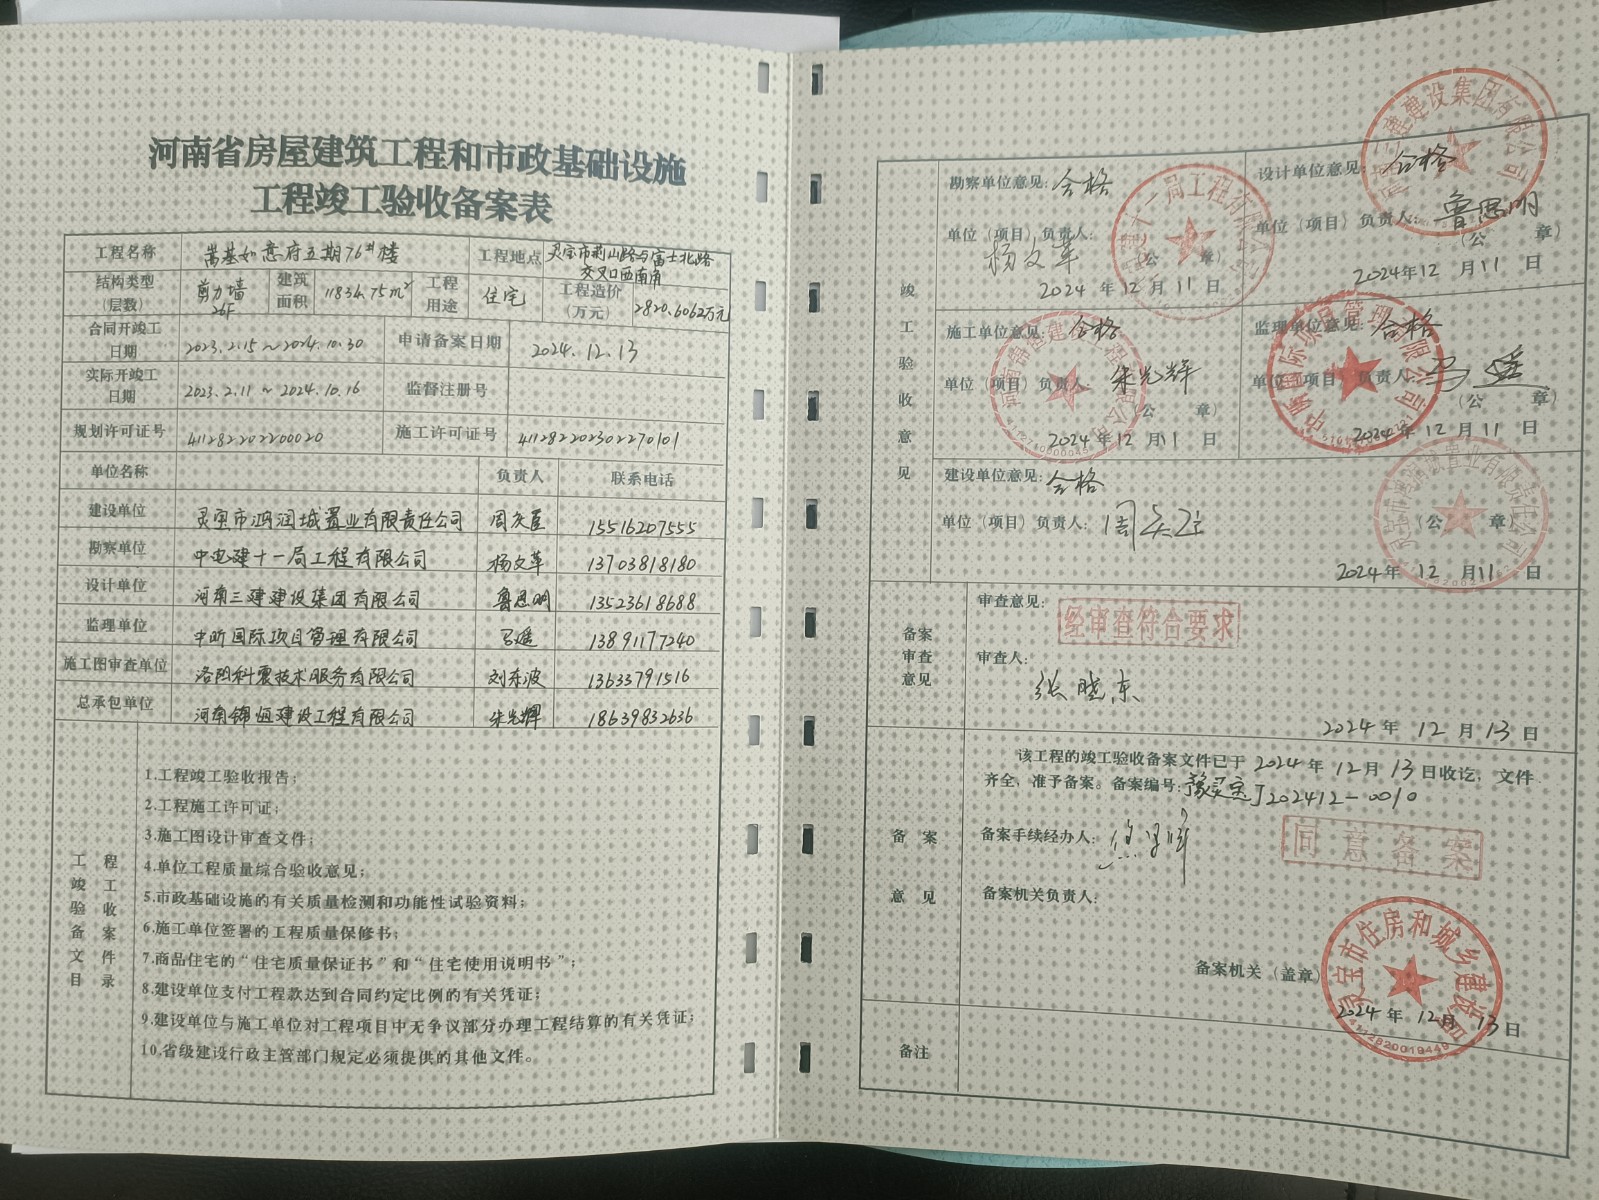 河南省房屋建筑工程和市政基础设施
工程竣工验收备案表
工程名称 嵩基如意府五期76#楼 工程地点 灵宝市荆山路与富士北路交叉口西南角
结构类型（层数） 剪力墙 26F 建筑面积 11834.75m² 工程用途 住宅 工程造价（万元） 2820.6062万元
合同开竣工日期 2023.2.15～2024.10.30 申请备案日期 2024.12.13
实际开竣工日期 2023.2.11～2024.10.16 监督注册号
规划许可证号 411282202200020 施工许可证号 411282202302270101
单位名称 负责人 联系电话
建设单位 灵宝市鸿润城置业有限责任公司 15516207555
勘察单位 中电建十一局工程有限公司 杨文革 13703818180
设计单位 河南三建建设集团有限公司 鲁思明 13523618688
监理单位 中昕国际项目管理有限公司 马遥 13891177240
施工图审查单位 洛阳科震技术服务有限公司 刘东波 13633791516
总承包单位 河南锦恒建设工程有限公司 朱光辉 18639832636
工程竣工验收备案文件目录
1.工程竣工验收报告；
2.工程施工许可证；
3.施工图设计审查文件；
4.单位工程质量综合验收意见；
5.市政基础设施的有关质量检测和功能性试验资料；
6.施工单位签署的工程质量保修书；
7.商品住宅的“住宅质量保证书”和“住宅使用说明书”；
8.建设单位支付工程款达到合同约定比例的有关凭证；
9.建设单位与施工单位对工程项目中无争议部分办理工程结算的有关凭证；
10.省级建设行政主管部门规定必须提供的其他文件。
竣工验收意见
勘察单位意见：合格
单位（项目）负责人：
杨文革
（公 章）
2024 年 12 月 11 日
设计单位意见：合格
单位（项目）负责人：鲁思明
（公 章）
2024年12 月11 日
施工单位意见：合格
单位（项目）负责人：朱光辉
（公 章）
2024 年12 月11 日
监理单位意见：合格
单位（项目）负责人：马遥
（公 章）
2024年 12 月11 日
建设单位意见：合格
单位（项目）负责人：
（公 章）
2024年 12 月11 日
备案审查意见
审查意见：
经审查符合要求
审查人：
张晓东
2024 年 12 月 13 日
备案意见
该工程的竣工验收备案文件已于 2024 年 12 月 13 日收讫，文件
齐全，准予备案。备案编号：豫灵宝J202412-0010
备案手续经办人：
同意备案
备案机关负责人：
备案机关（盖章）
灵宝市住房和城乡建设局
2024 年 12 月 13 日
备注